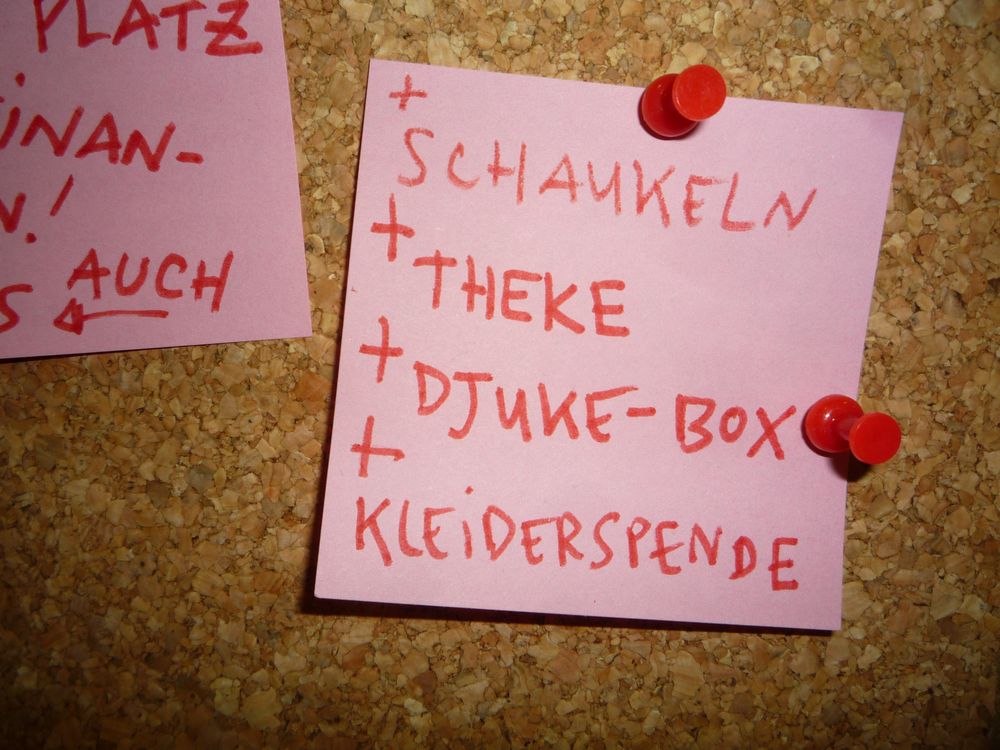 PLATZ
INAN-
N!
S ← AUCH
+
SCHAUKELN
+
THEKE
+
DJUKE-BOX
+
KLEIDERSPENDE